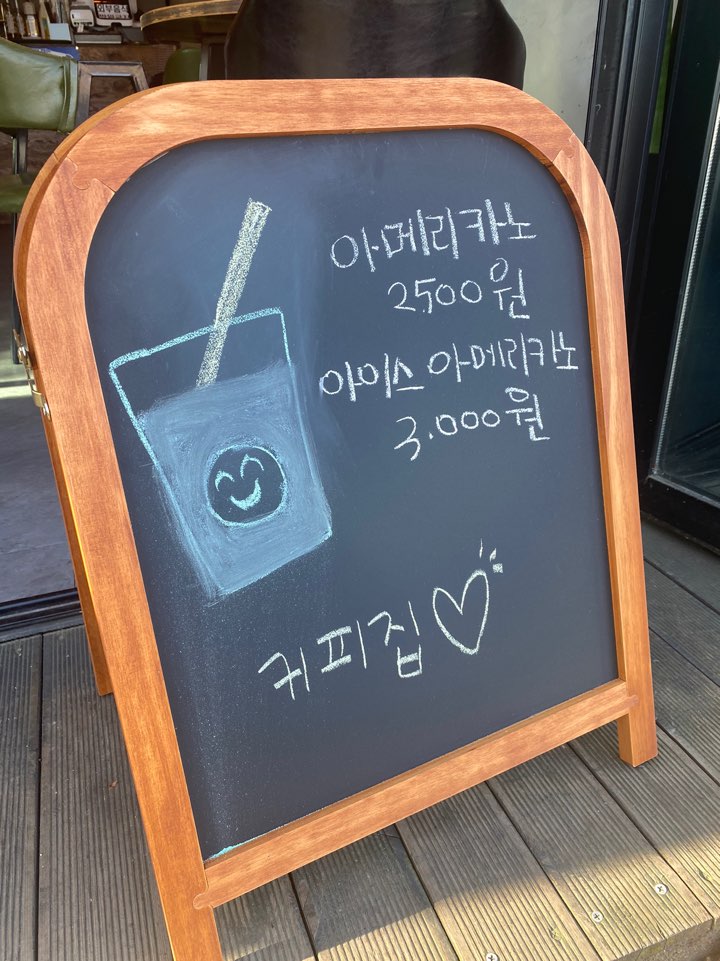 아메리카노
2500원
아이스 아메리카노
3.000원
커피집♡